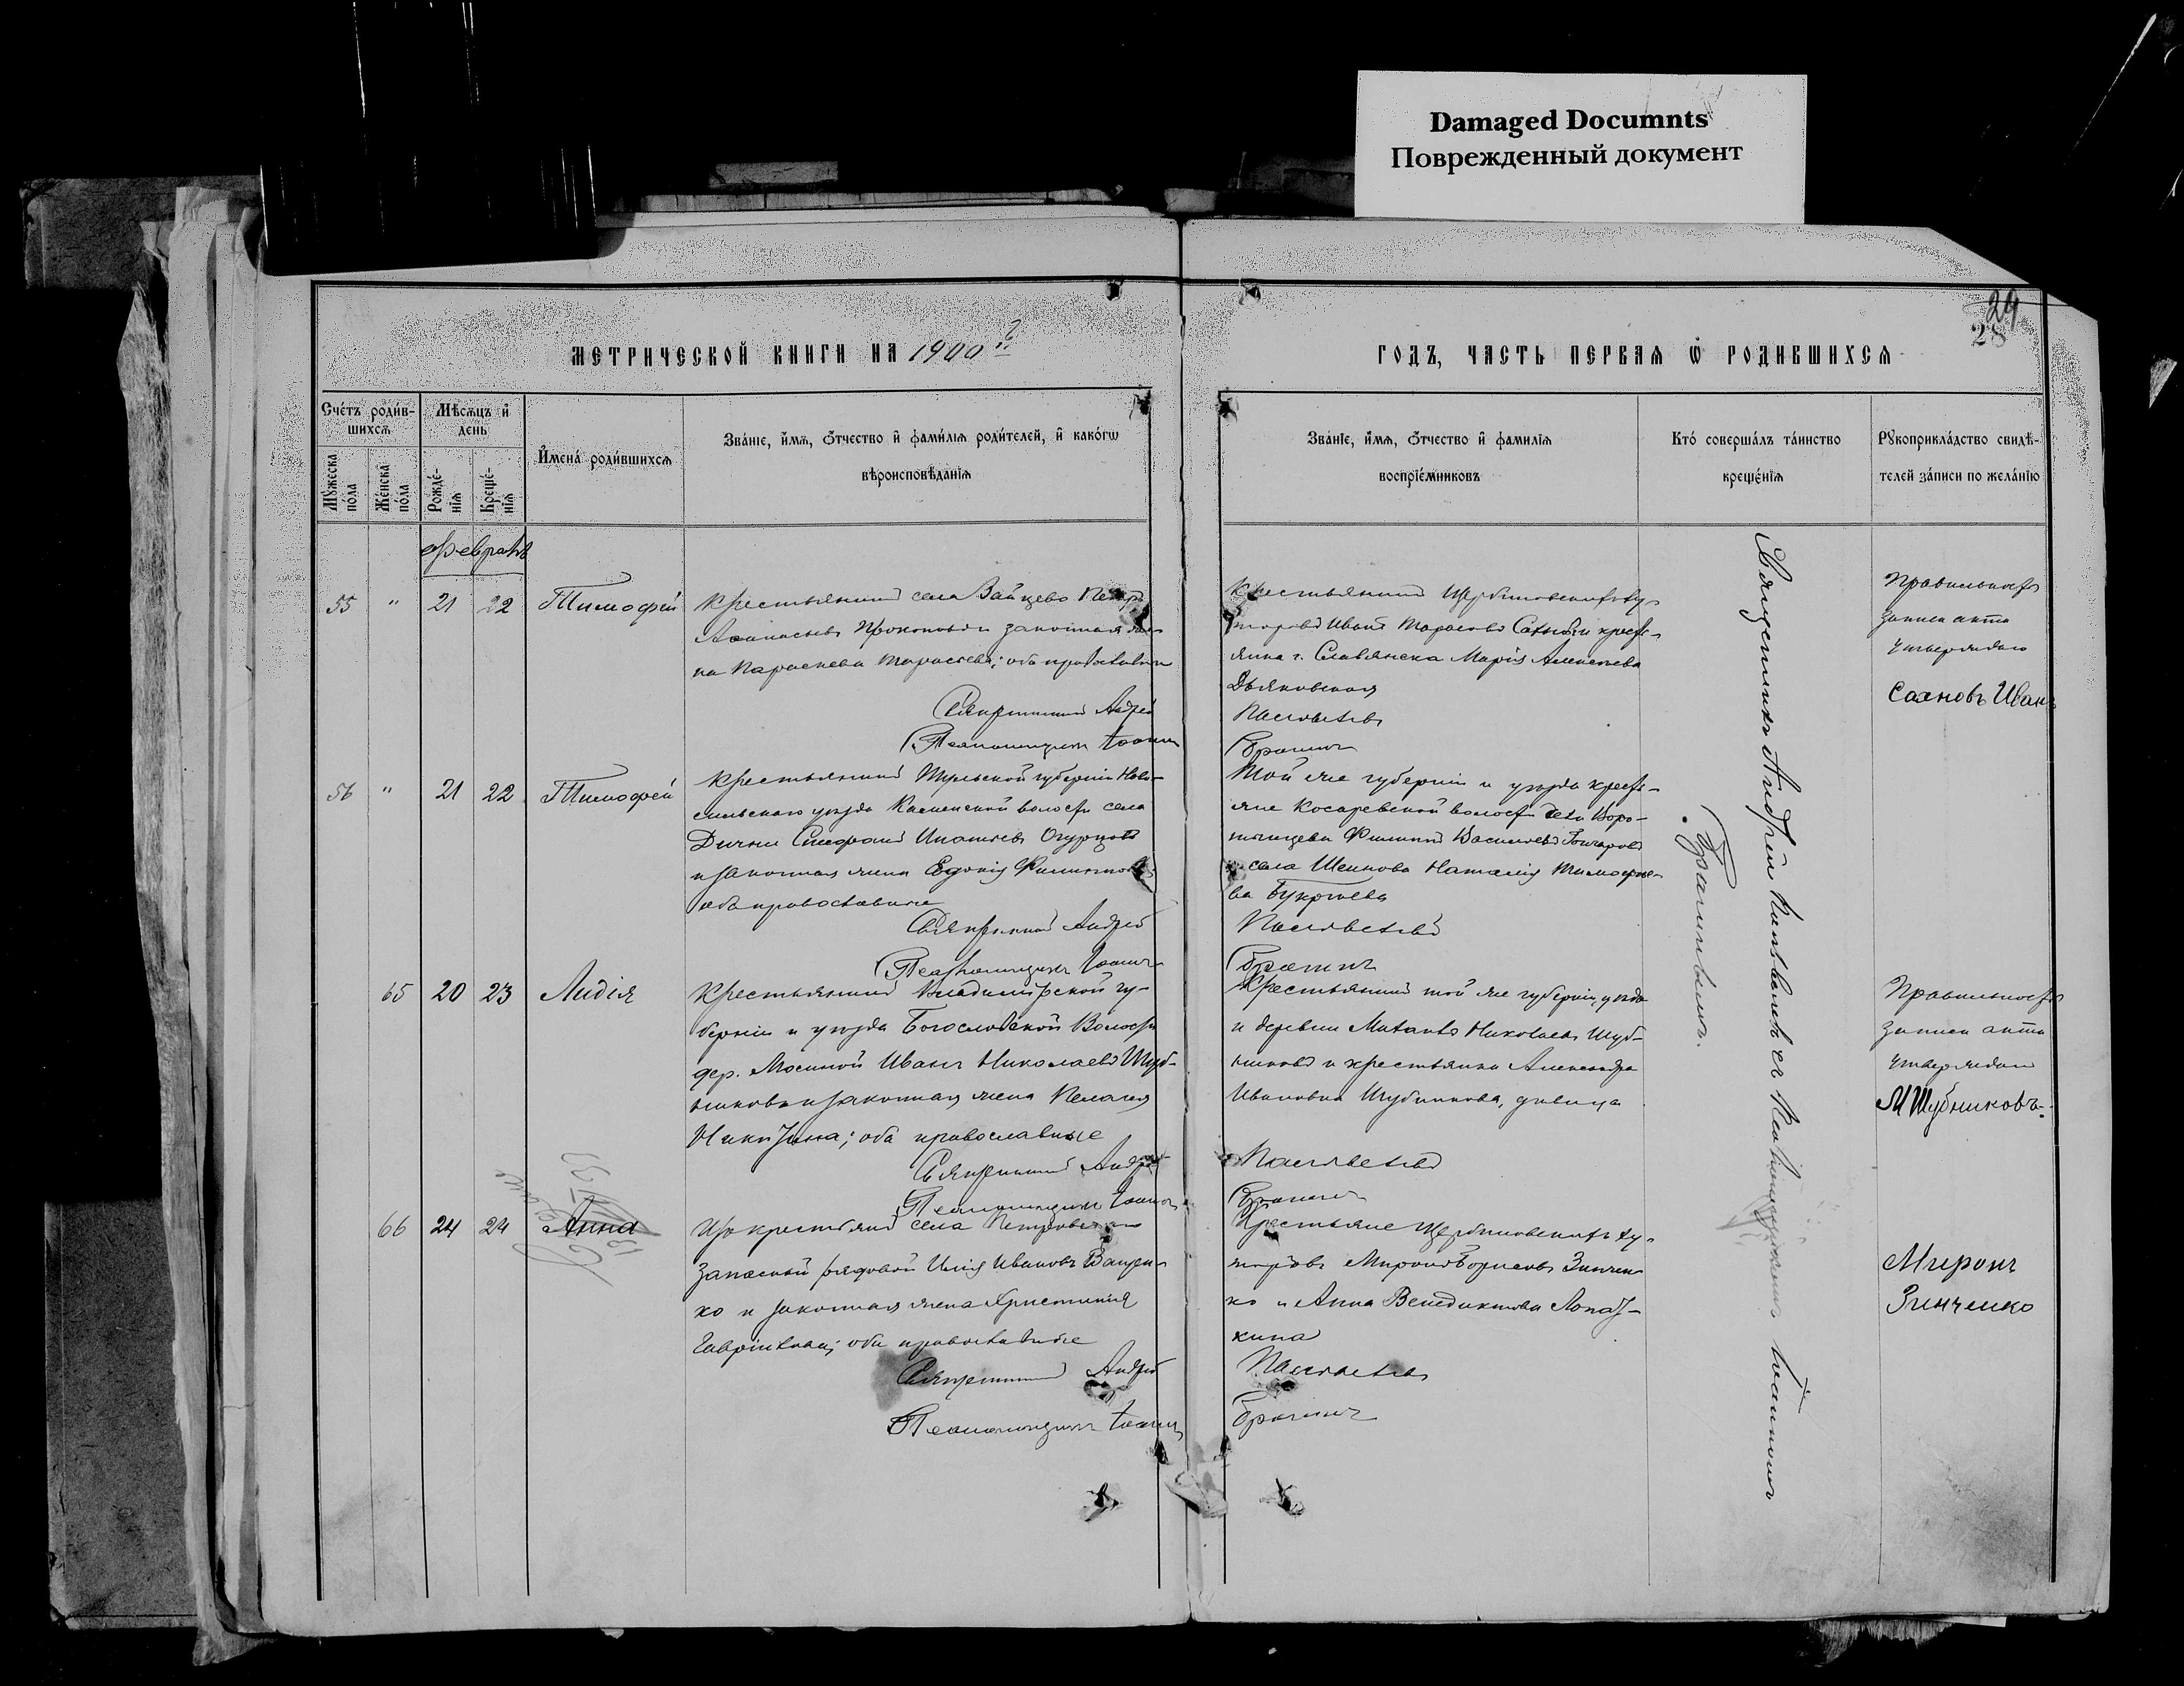 Damaged Documnts
Поврежденный документ
29
28
МЕТРИЧЕСКОЙ КНИГИ НА 1900 г.
ГОДЪ, ЧАСТЬ ПЕРВАЯ Ѡ РОДИВШИХСЯ
Счéтъ роди́вшихсѧ
Мꙋ́жеска по́ла
Же́нска по́ла
Мѣ́сѧцъ и҆ день
Рожде́нїѧ
Креще́нїѧ
И҆мена̀ роди́вшихсѧ
Зва́нїе, и҆́мѧ, ѻ҆́тчество и҆ фами́лїѧ роди́телей, и҆ како́гѡ
вѣроисповѣ́данїѧ
Зва́нїе, и҆́мѧ, ѻ҆́тчество и҆ фами́лїѧ
воспрїе́мниковъ
Кто̀ соверша́лъ та́инство
креще́нїѧ
Рꙋкоприкла́дство свидѣ́телей за́писи по жела́нїю
Февраль
55 " 21 22 Тимофей
Крестьянинъ села Зайцево Петръ
Аѳанасьевъ Прокопьевъ законная же-
на Параскева Тарасіева; оба православные
Священникъ Андрей
Псаломщикъ Іоаннъ
Крестьянинъ Щербиновскихъ ху-
торовъ Иванъ Тарасовъ и крестьянка г. Славянска Марія Алексѣева
Дьяковская
Поливановъ
Брагинъ
Правильность
записи акта
утверждаю
Сахновъ Иванъ
56 " 21 22 Тимофей
Крестьянинъ Тульской губерніи Ново-
сильскаго уѣзда Каменской волости села
Дични Стефанъ Игнатьевъ Огурцовъ
и законная жена Филиппова
оба православные
Священникъ Андрей
Псаломщикъ Іоаннъ
Той же губерніи и уѣзда кресть-
яне Косаревской волости Воро-
тынцева Филиппъ Васильевъ Гончаровъ
села Шейнова Наталія Тимофее-
ва
Поливановъ
Брагинъ
65 20 23 Лидія
Крестьянинъ Владимірской гу-
берніи и уѣзда Богословской Волости
дер. Мосиной Иванъ Николаевъ Шуб-
никовъ и законная жена Пелагія
Никитина; оба православные
Священникъ Андрей
Псаломщикъ Іоаннъ
Крестьянинъ той же губерніи, уѣзда
и деревни Михаилъ Николаевъ Шуб-
никовъ и крестьянка Александра
Ивановна Шубникова, дѣвица
Поливановъ
Брагинъ
Правильность
записи акта
утверждаю
М Шубниковъ.
66 24 24 Анна
Изъ крестьянъ села
запасный рядовой Илія Ивановъ Ващен-
ко и законная жена Христинія
Гавріилова; оба православные
Священникъ Андрей
Псаломщикъ Іоаннъ
Крестьяне Щербиновскихъ ху-
торовъ Миронъ Борисовъ Зинчен-
ко и Анна Венедиктова Лопат-
кина
Поливановъ
Брагинъ
Миронъ
Зинченко
Священникъ Андрей Поливановъ съ Псаломщикомъ Іоанномъ
Брагинымъ.